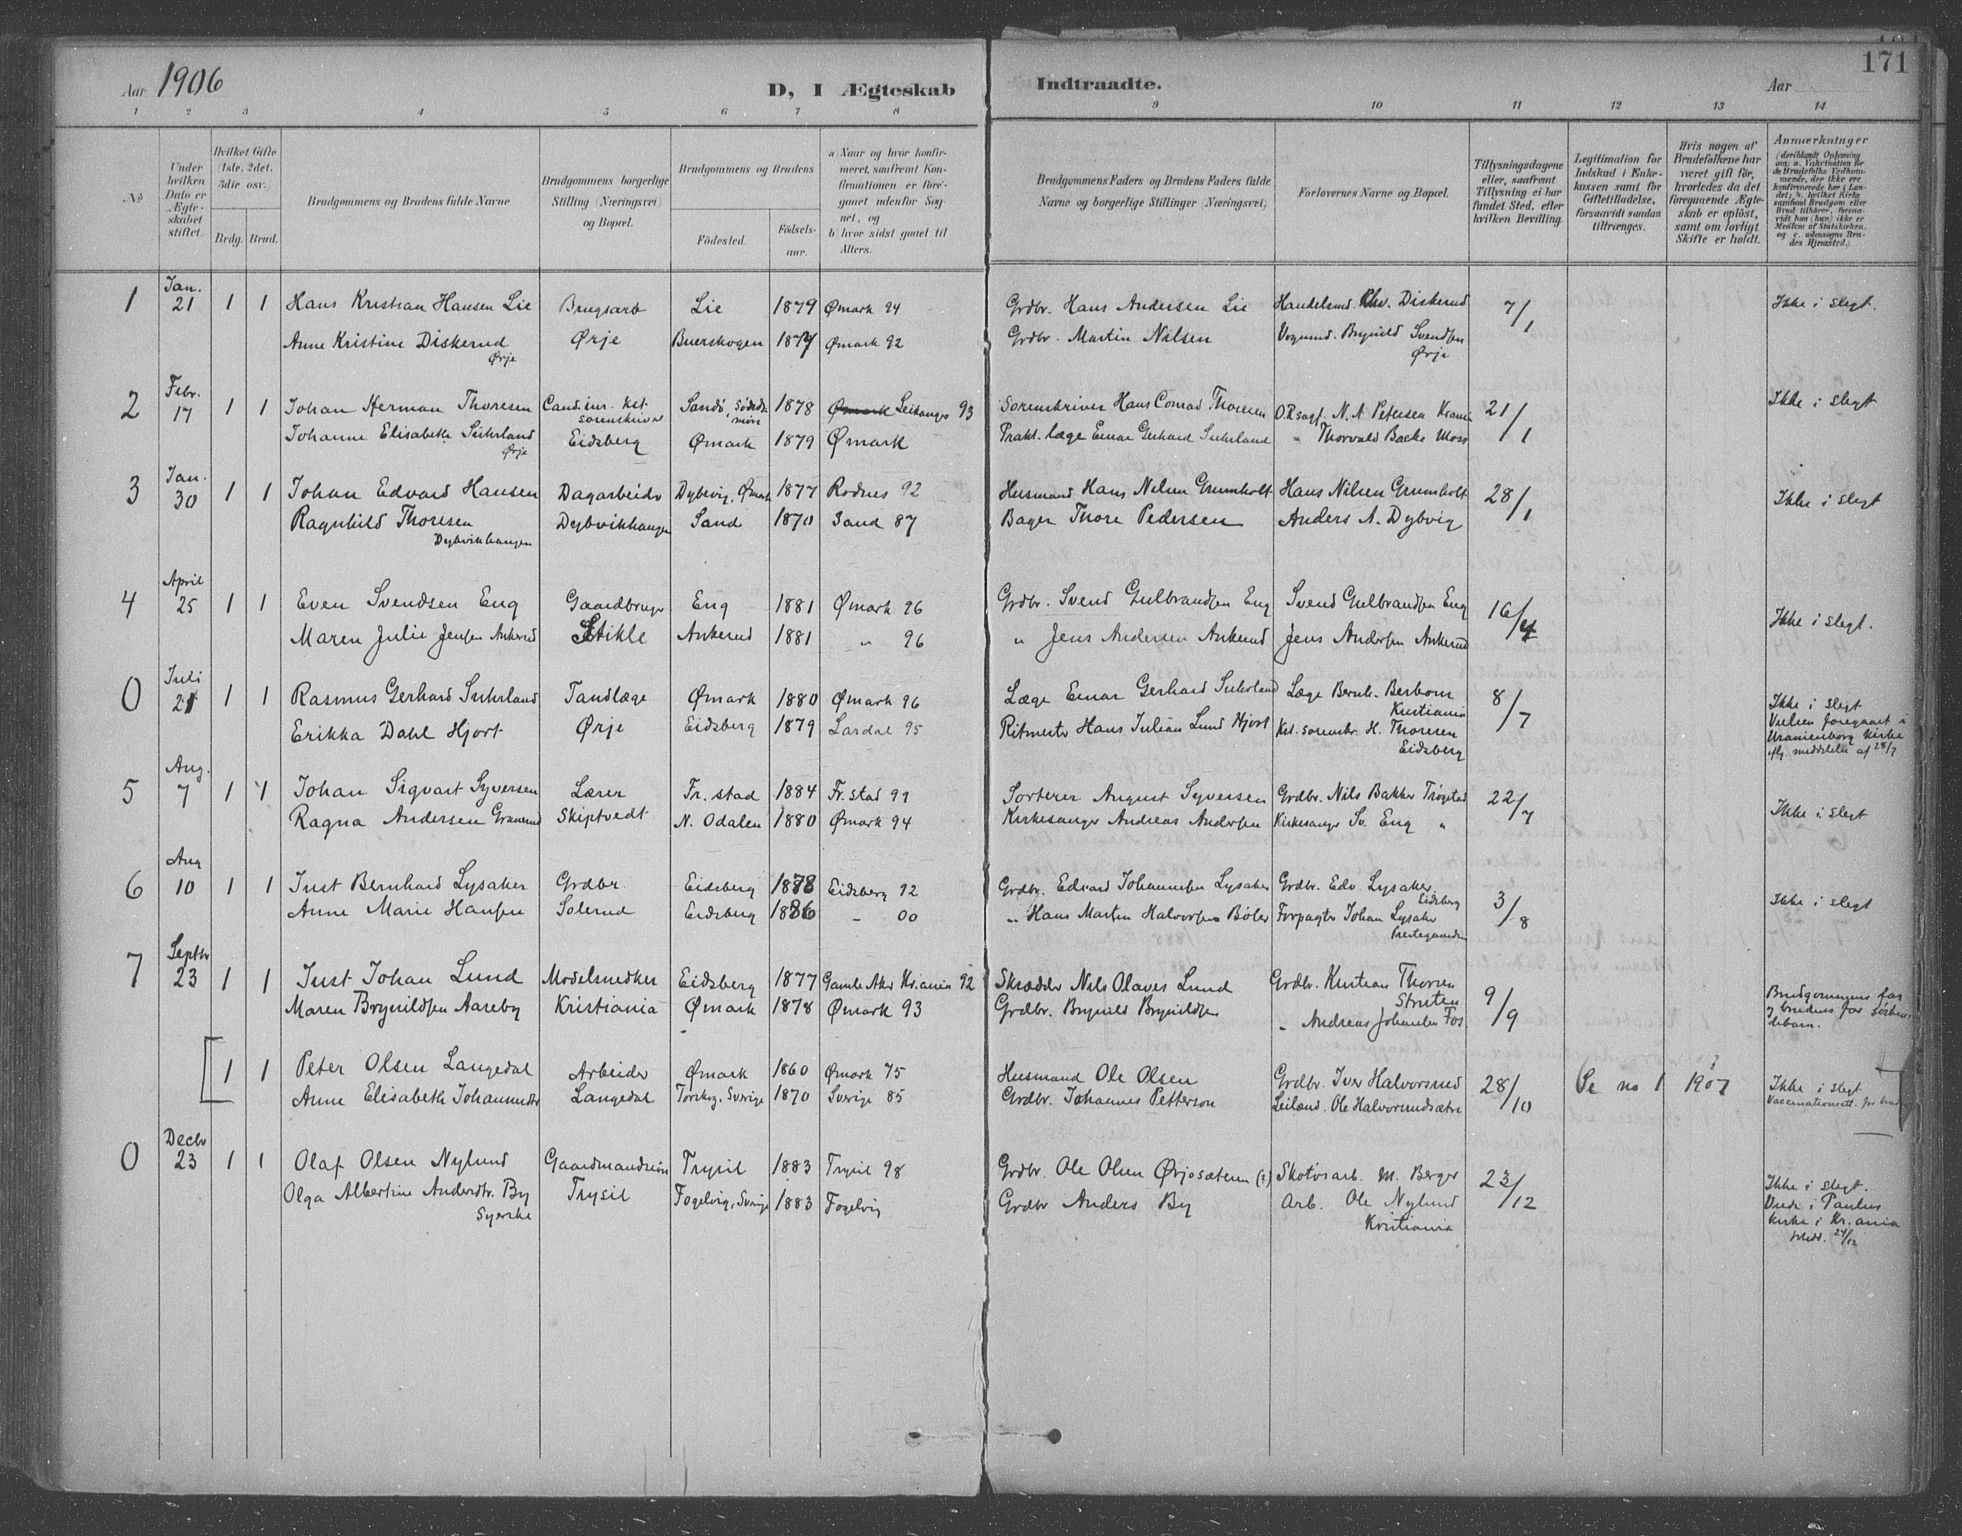 171
Aar 1906
D, I Ægteskab
Indtraadte.
Aar
1 2 3 4 5 6 7 8 9 10 11 12 13 14
No
Under hvilken Dato er Ægteskabet stiftet.
Hvilket Gifte (1ste, 2det, 3die osv.)
Brdg. Brud.
Brudgommens og Brudens fulde Navne
Brudgommens borgerlige Stilling (Næringsvei) og Bopæl.
Brudgommens og Brudens
Födested.
Födsels-aar.
a) Naar og hvor konfirmeret, saafremt Konfirmationen er foregaaet udenfor Sognet, og
b) hvor sidst gaaet til Alters.
Brudgommens Faders og Brudens Faders fulde Navne og borgerlige Stillinger (Næringsvei)
Forlovernes Navne og Bopæl.
Tillysningsdagene eller, saafremt Tillysning ei har fundet Sted, efter hvilken Bevilling.
Legitimation for Indskud i Enkekassen samt for Giftetilladelse, forsaavidt saadan tiltrænges.
Hvis nogen af Brudefolkene har været gift før, hvorledes da det foregaaende Ægteskab er oplöst, samt om lovligt Skifte er holdt.
Anmærkninger
1 Jan. 21 1 1 Hans Kristian Hansen Lie Brugsarb Lie 1879 Ømark 94 Grdbr. Hans Andersen Lie Handelsmd. Chr. Diskerud 7/1 Ikke i slegt.
Anne Kristine Diskerud Ørje Ørje Buerskogen 1874 Ømark 92 Grdbr. Martin Nilsen Vognmd. Brynild Svendsen Ørje
2 Febr. 17 1 1 Johan Herman Thoresen Cand. jur. kst. sorenskriver Sandø, Søndmør 1878 Ømark Leikanger 93 Sorenskriver Hans Conrad Thoresen O.R.sagf. N. A. Petersen Krania 21/1 Ikke i slegt
Johanne Elisabeth Suhrland Ørje Eidsberg Ømark 1879 Ømark Prakt. læge Einar Gerhard Suhrland " Thorvald Backe Moss
3 Jan. 30 1 1 Johan Edvard Hansen Dagarbeider Dybvig, Ømark 1877 Rødnes 92 Husmand Hans Nilsen Grumholt Hans Nilsen Grumholt 28/1 Ikke i slegt
Ragnhild Thoresen Dybvikhaugen Dybvikhaugen Sand 1870 Sand 87 Bager Thore Pedersen Anders A. Dybvig
4 April 25 1 1 Even Svendsen Eng Gaardbruger Eng 1881 Ømark 96 Grdbr. Svend Gulbrandsen Eng Svend Gulbrandsen Eng 16/4 Ikke i slegt.
Maren Julie Jensen Ankerud Stikle Ankerud 1881 " 96 " Jens Andersen Ankerud Jens Andersen Ankerud
0 Juli 21 1 1 Rasmus Gerhard Suhrland Tandlæge Ømark 1880 Ømark 96 Læge Einar Gerhard Suhrland Læge Bernh. Berbom Kristiania 8/7 Ikke i slegt
Erikka Dahl Hjort Ørje Eidsberg 1879 Lardal 95 Ritmester Hans Julian Lund Hjort Kst. sorenskr. H. Thoresen Eidsberg Vielsen foregaaet i Uranienborg kirke iflg. meddelelse af 28/7
5 Aug. 7 1 1 Johan Sigvart Syversen Lærer Fr.stad 1884 Fr.stad 99 Sorterer August Syversen Grdbr. Nils Bakker Trøgstad 22/7 Ikke i slegt
Ragna Andersen Granerud Skiptvedt N. Odalen 1880 Ømark 94 Kirkesanger Andreas Andersen Kirkesanger Sv. Eng "
6 Aug 10 1 1 Just Bernhard Lysaker Grdbr Eidsberg 1878 Eidsberg 92 Grdbr. Edvard Johannesen Lysaker Grdbr. Edv. Lysaker Eidsberg 3/8 Ikke i slegt
Anne Marie Hansen Solerud Eidsberg 1886 " 00 " Hans Martin Halvorsen Bøler Forpagter Johan Lysaker Prestegaarden
7 Septbr 23 1 1 Just Johan Lund Modelsnedker Eidsberg 1877 Gamle Aker Kr.ania 92 Skrædder Nils Olaves Lund Grdbr. Kristian Thoresen Struten 9/9 Brudgommens far og brudens far søskendebarn.
Maren Brynildsen Aareby Kristiania Ømark 1878 Ømark 93 Grdbr. Brynild Brynildsen " Andreas Johansen Fos
1 1 Peter Olsen Langedal Arbeider Ømark 1860 Ømark 75 Husmand Ole Olsen Grdbr. Iver Halvorsrud 28/10 Se no 1 1907 Ikke i slegt
Anne Elisabeth Johannesdtr Langedal Torskog, Sverige 1870 Sverige 85 Grdbr. Johannes Petterson Leilænd. Ole Halvorsrudsæter Vaccinationsatt. for brud
0 Decbr 23 1 1 Olaf Olsen Nylund Gaardmandssøn Trysil 1883 Trysil 98 Grdbr. Ole Olsen Ørjesæteren (?) Skotøiarb. M. Berger 23/12 Ikke i slegt.
Olga Albertine Andersdtr. By Syerske Trysil Fogelvig, Sverige 1883 Fogelvig Grdbr Anders By Arb. Ole Nylund Kristiania Viede i Paulus kirke i Kr.ania Medd. 24/12